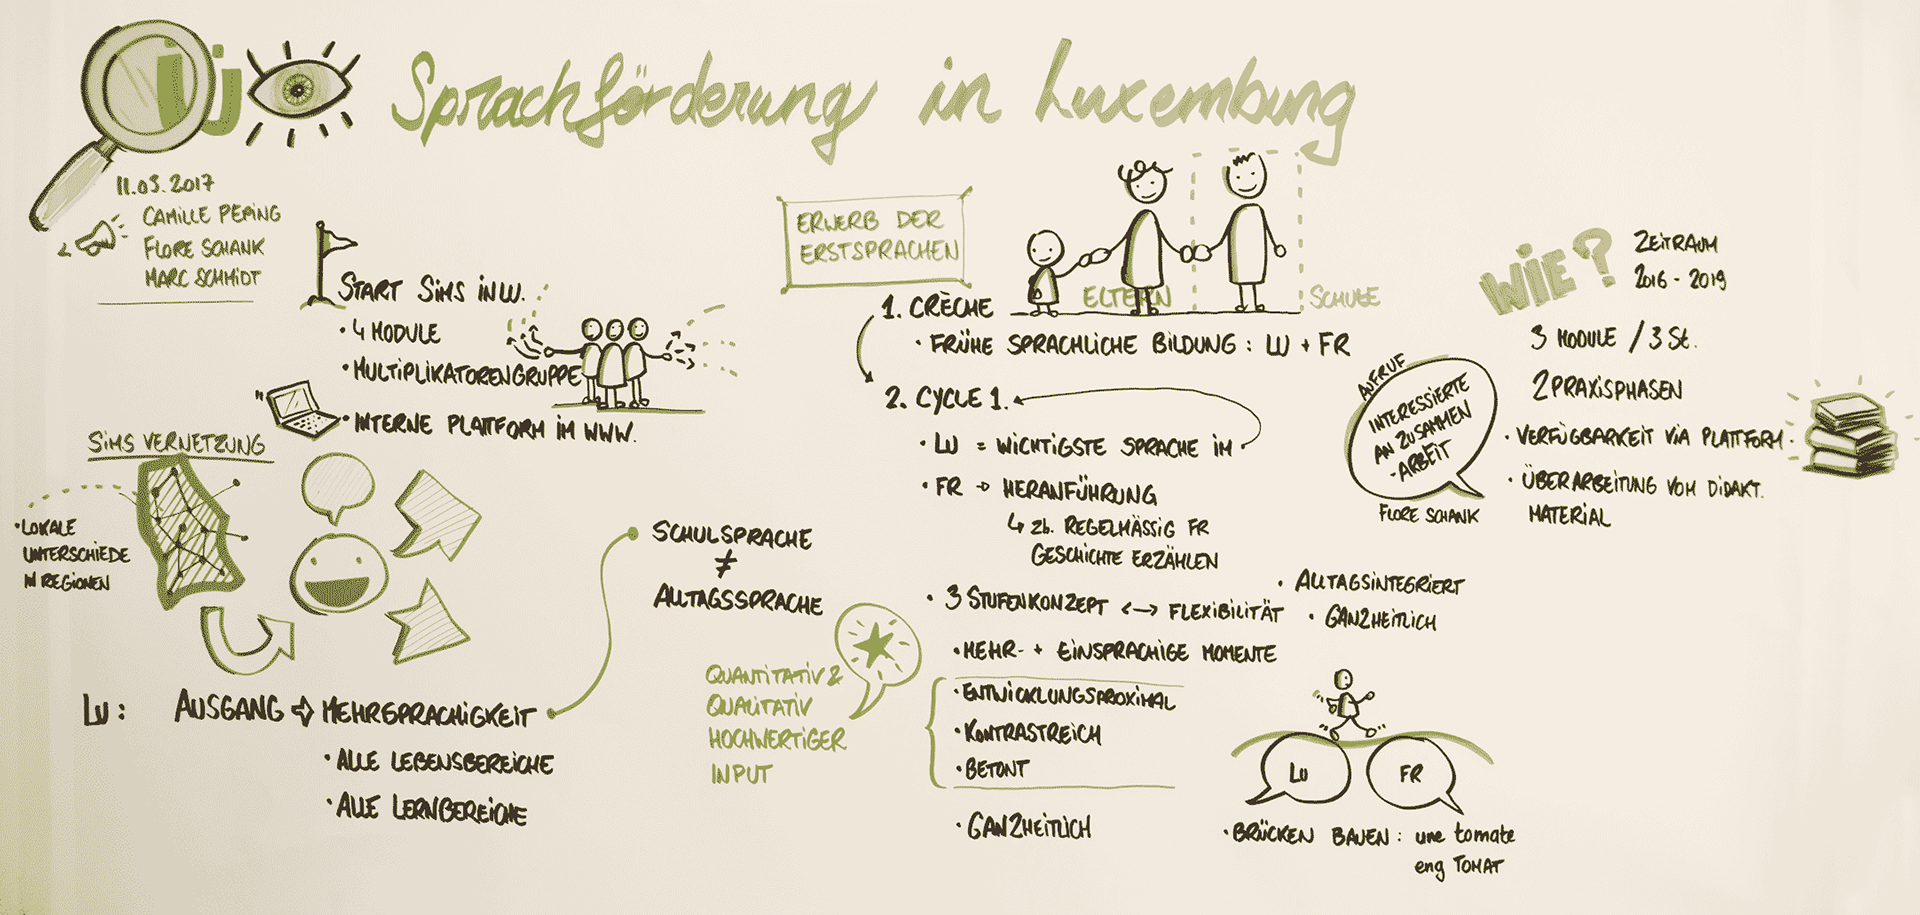 LÜ
Sprachförderung in Luxemburg
11.03.2017
CAMILLE PEPING
FLORE SCHANK
MARC SCHMIDT
START SiMS iN LU.
· 4 MODULE
· MULTIPLIKATORENGRUPPE
· INTERNE PLATTFORM IM WWW.
SiMS VERNETZUNG
· LOKALE
UNTERSCHIEDE
IN REGIONEN
LU: AUSGANG ⇨ MEHRSPRACHIGKEIT
· ALLE LEBENSBEREICHE
· ALLE LERNBEREICHE
SCHULSPRACHE
≠
ALLTAGSSPRACHE
ERWERB DER
ERSTSPRACHEN
ELTERN
SCHULE
1. CRÈCHE
· FRÜHE SPRACHLICHE BILDUNG: LU + FR
2. CYCLE 1.
· LU = WICHTIGSTE SPRACHE IM
· FR → HERANFÜHRUNG
↳ zb. REGELMÄSSIG FR
GESCHICHTE ERZÄHLEN
· 3 STUFENKONZEPT <-> FLEXIBILITÄT
· ALLTAGSINTEGRIERT
· GANZHEITLICH
· MEHR- + EINSPRACHIGE MOMENTE
QUANTITATIV &
QUALITATIV
HOCHWERTIGER
INPUT
· ENTWICKLUNGSPROXIMAL
· KONTRASTREICH
· BETONT
· GANZHEITLICH
LU
FR
· BRÜCKEN BAUEN: une tomate
eng TOMAT
WIE?
ZEITRAUM
2016 - 2019
3 MODULE / 3 St.
2 PRAXISPHASEN
· VERFÜGBARKEIT VIA PLATTFORM
· ÜBERARBEITUNG VOM DIDAKT.
MATERIAL
AUFRUF
INTERESSIERTE
AN ZUSAMMEN
-ARBEIT
FLORE SCHANK